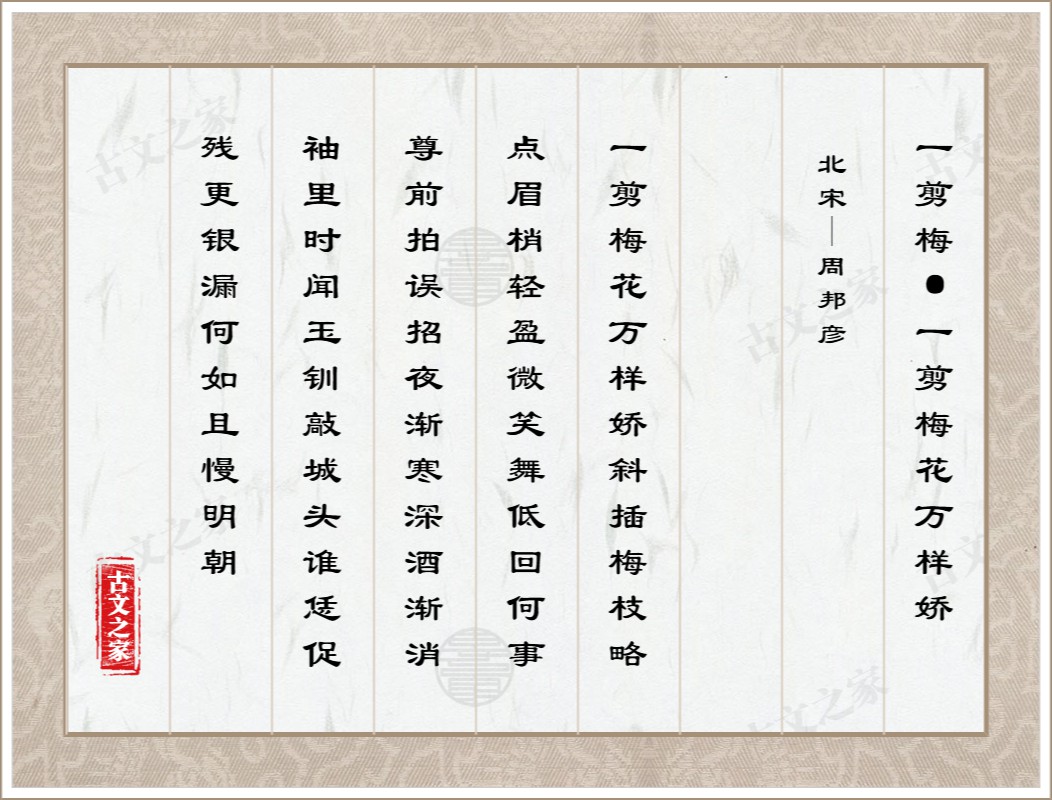 一剪梅●一剪梅花万样娇
北宋—周邦彦
一剪梅花万样娇斜插梅枝略
点眉梢轻盈微笑舞低回何事
尊前拍误招夜渐寒深酒渐消
袖里时闻玉钏敲城头谁恁促
残更银漏何如且慢明朝
古文之家